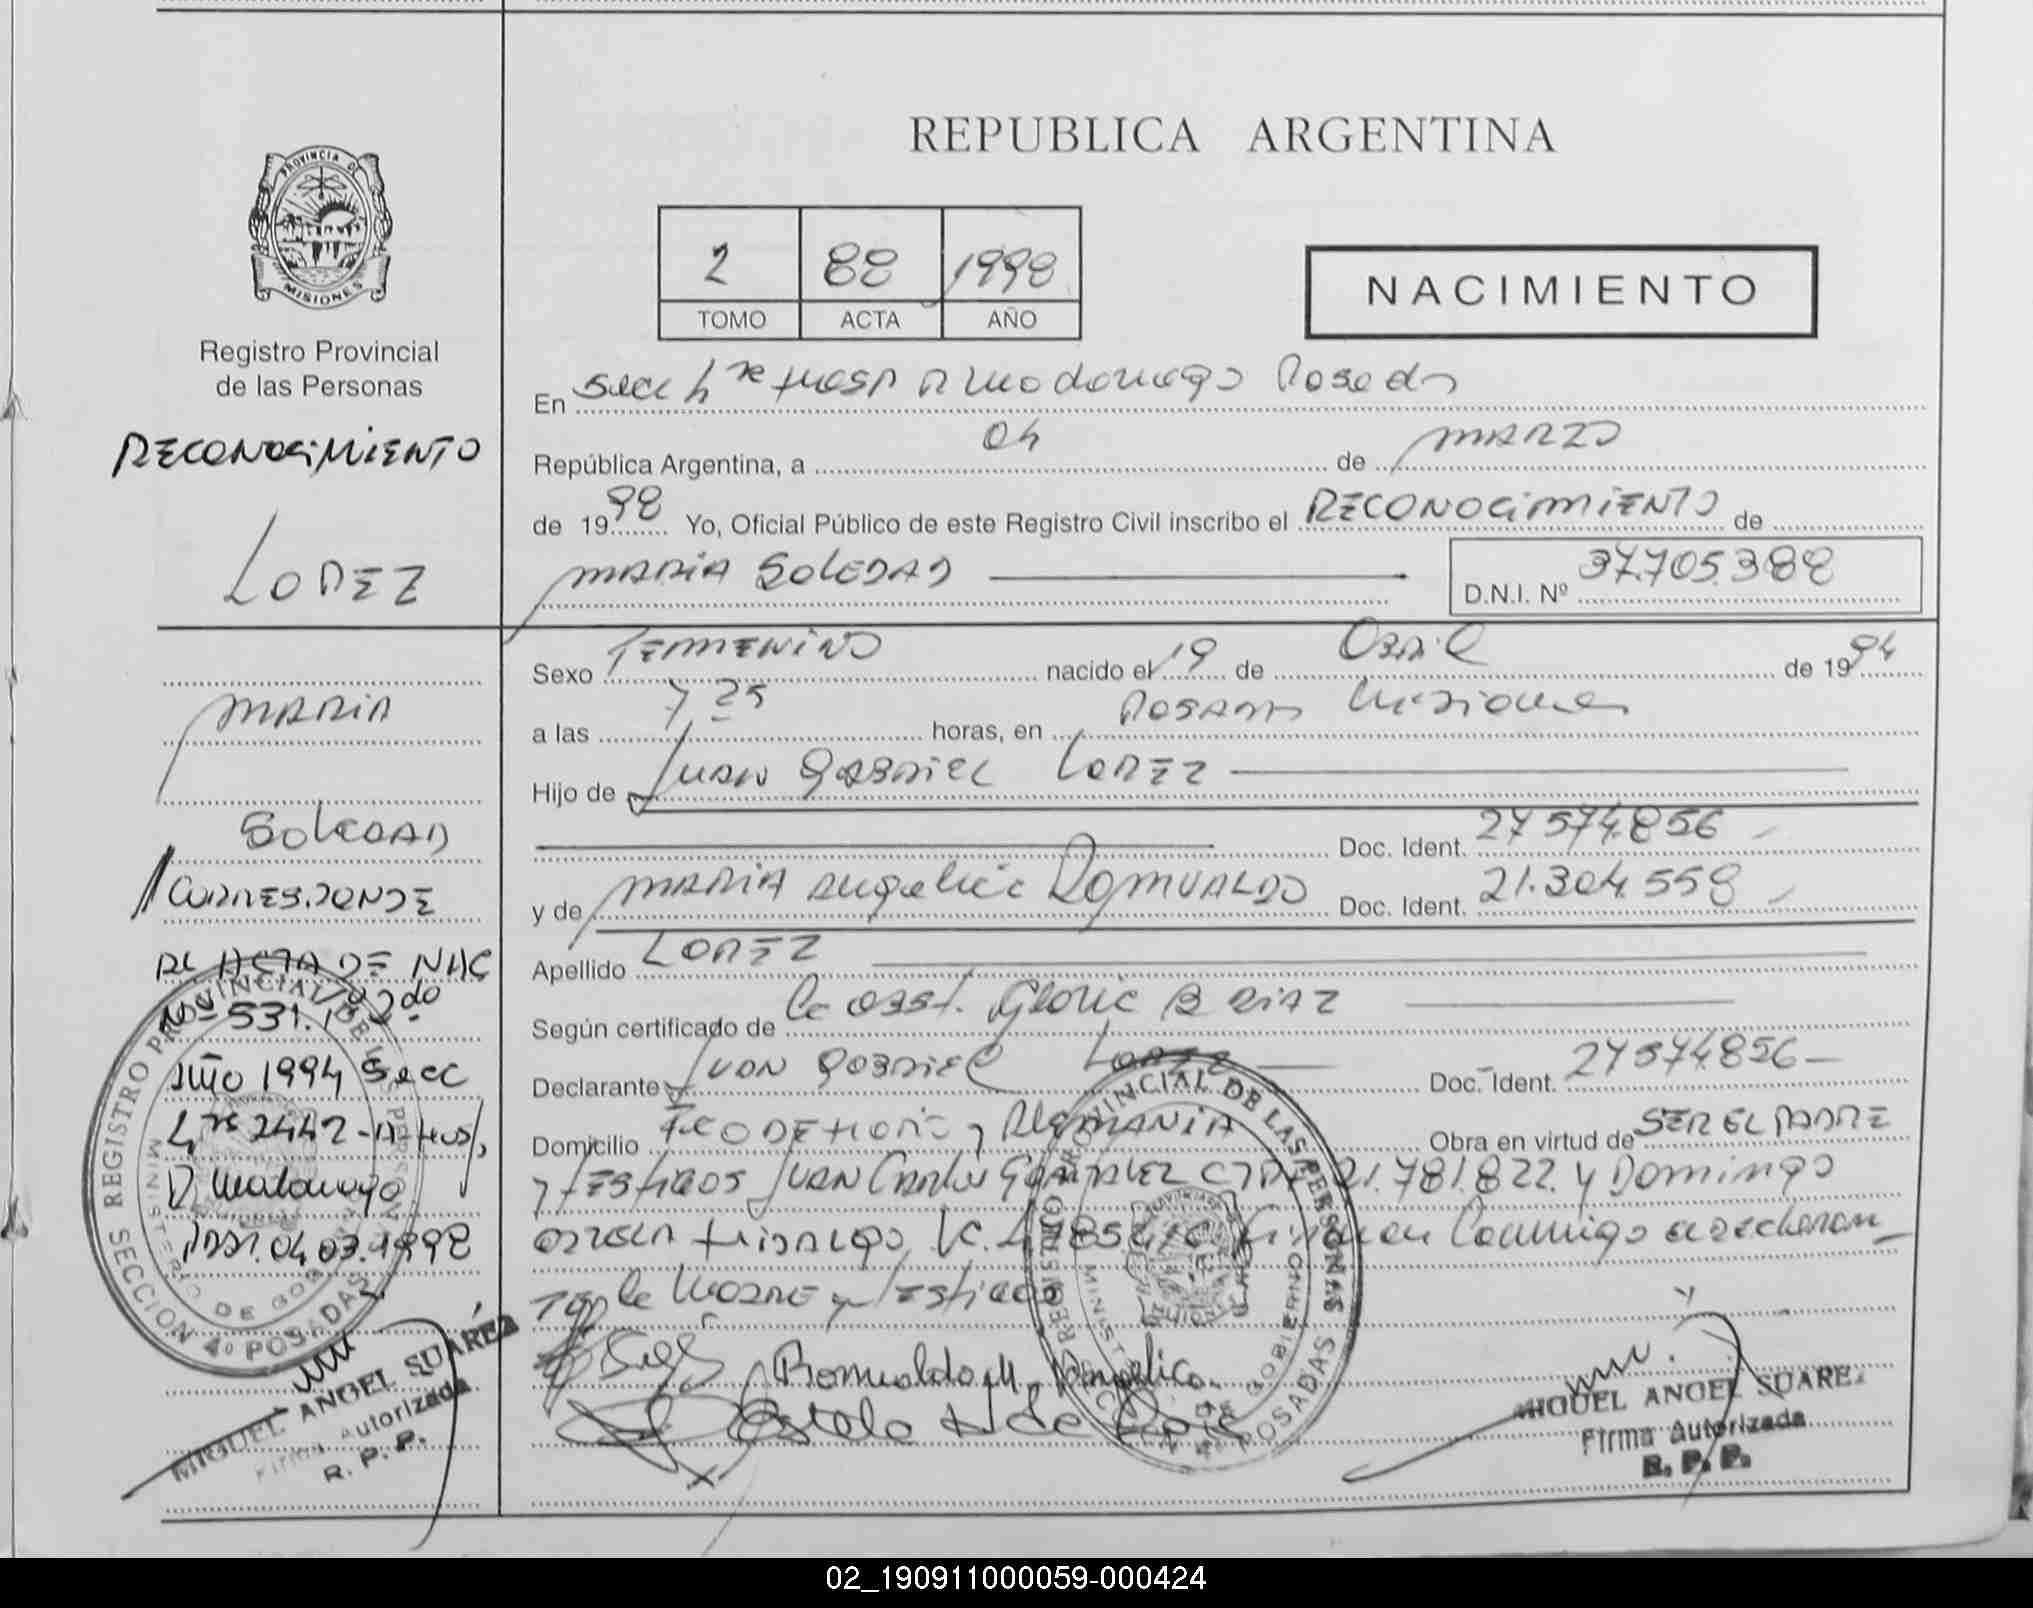 REPUBLICA ARGENTINA
PROVINCIA DE
MISIONES
Registro Provincial
de las Personas
RECONOCIMIENTO
LOPEZ
MARIA
SOLEDAD
CORRESPONDE
AL ACTA DE NAC
Nº 531. Tº 2do
Año 1994 Secc
4ta 2442-A Hosp
R Madariaga
Pdas. 04.03.1998
REGISTRO PROVINCIAL DE LAS PERSONAS
MINISTERIO DE GOBIERNO
SECCION 4º POSADAS
MIGUEL ANGEL SUAREZ
Firma Autorizada
R. P. P.
2 88 1998
TOMO ACTA AÑO
NACIMIENTO
En Secc 4ta Hosp R Madariaga Posadas
República Argentina, a 04 de MARZO
de 1998 Yo, Oficial Público de este Registro Civil inscribo el RECONOCIMIENTO de
MARIA SOLEDAD
D.N.I. Nº 37.705.388
Sexo FEMENINO nacido el 19 de Abril de 1994
a las 7 25 horas, en POSADAS Misiones
Hijo de JUAN GABRIEL LOPEZ
Doc. Ident. 27.574.856
y de MARIA Angelica ROMUALDO Doc. Ident. 21.304.558
Apellido LOPEZ
Según certificado de la Obst. Gloria B DIAZ
Declarante JUAN GABRIEL LOPEZ Doc. Ident. 27574856
Domicilio y ALEMANIA Obra en virtud de SER EL PADRE
y TESTIGOS JUAN Carlos GONZALEZ 21.781.822. y Domingo
HIDALGO Firman Conmigo
la MADRE y Testigos
Romualdo M. Angelica.
REGISTRO PROVINCIAL DE LAS PERSONAS
MINISTERIO DE GOBIERNO
SECCION 4º POSADAS
MIGUEL ANGEL SUAREZ
Firma Autorizada
R. P. P.
02_190911000059-000424